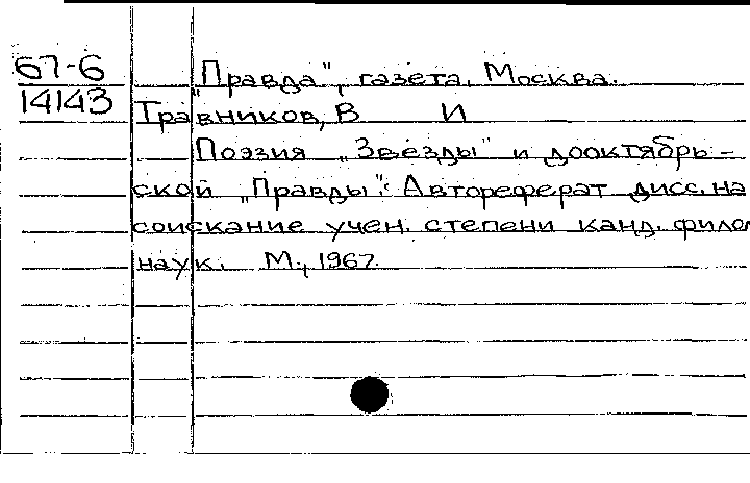 67-6
14143
"Правда", газета, Москва.
Травников, В И
Поэзия "Звезды" и дооктябрь-
ской "Правды": Автореферат дисс. на
соискание учен. степени канд. филол
наук. М., 1967.